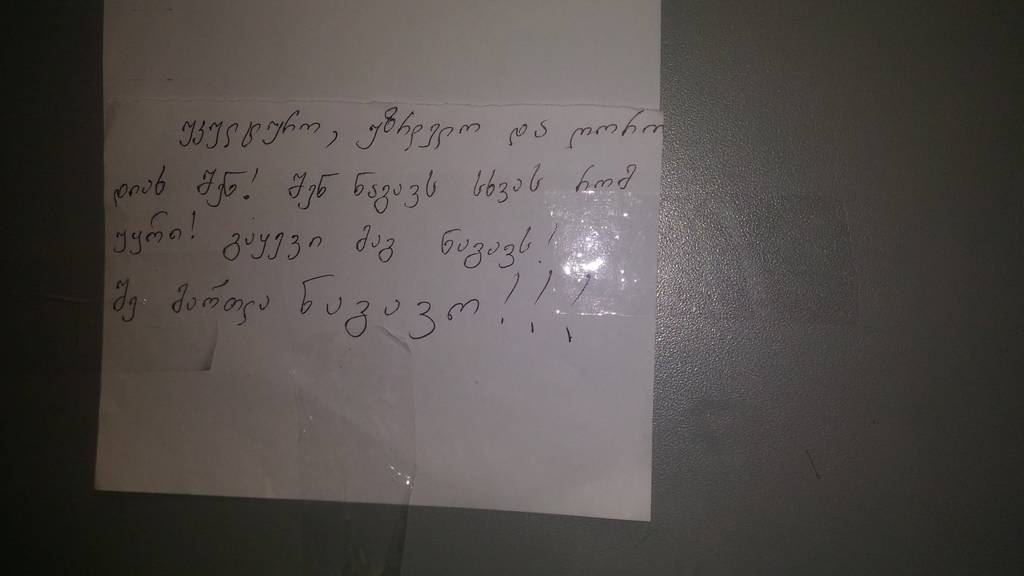 უკულტურო, უზრდელო და ღორო
დიახ შენ! შენ ნაგავს სხვას რომ
უყრი! გაყევი მაგ ნაგავს!
შე მართლა ნაგავო!!!